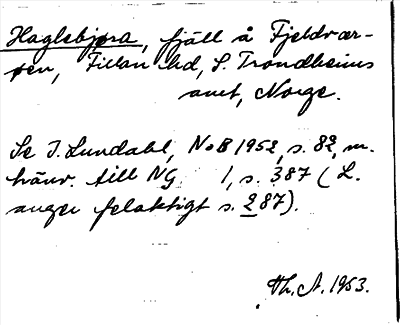 Haglebjøra, fjäll å Fjeldvær-
øen, Fillan hd, S. Trondheims
amt, Norge.
Se I. Lundahl, NoB 1952, s. 82, m.
hänv. till NG 1, s. 387 (L.
anger felaktigt s. 287).
Th. A. 1953.